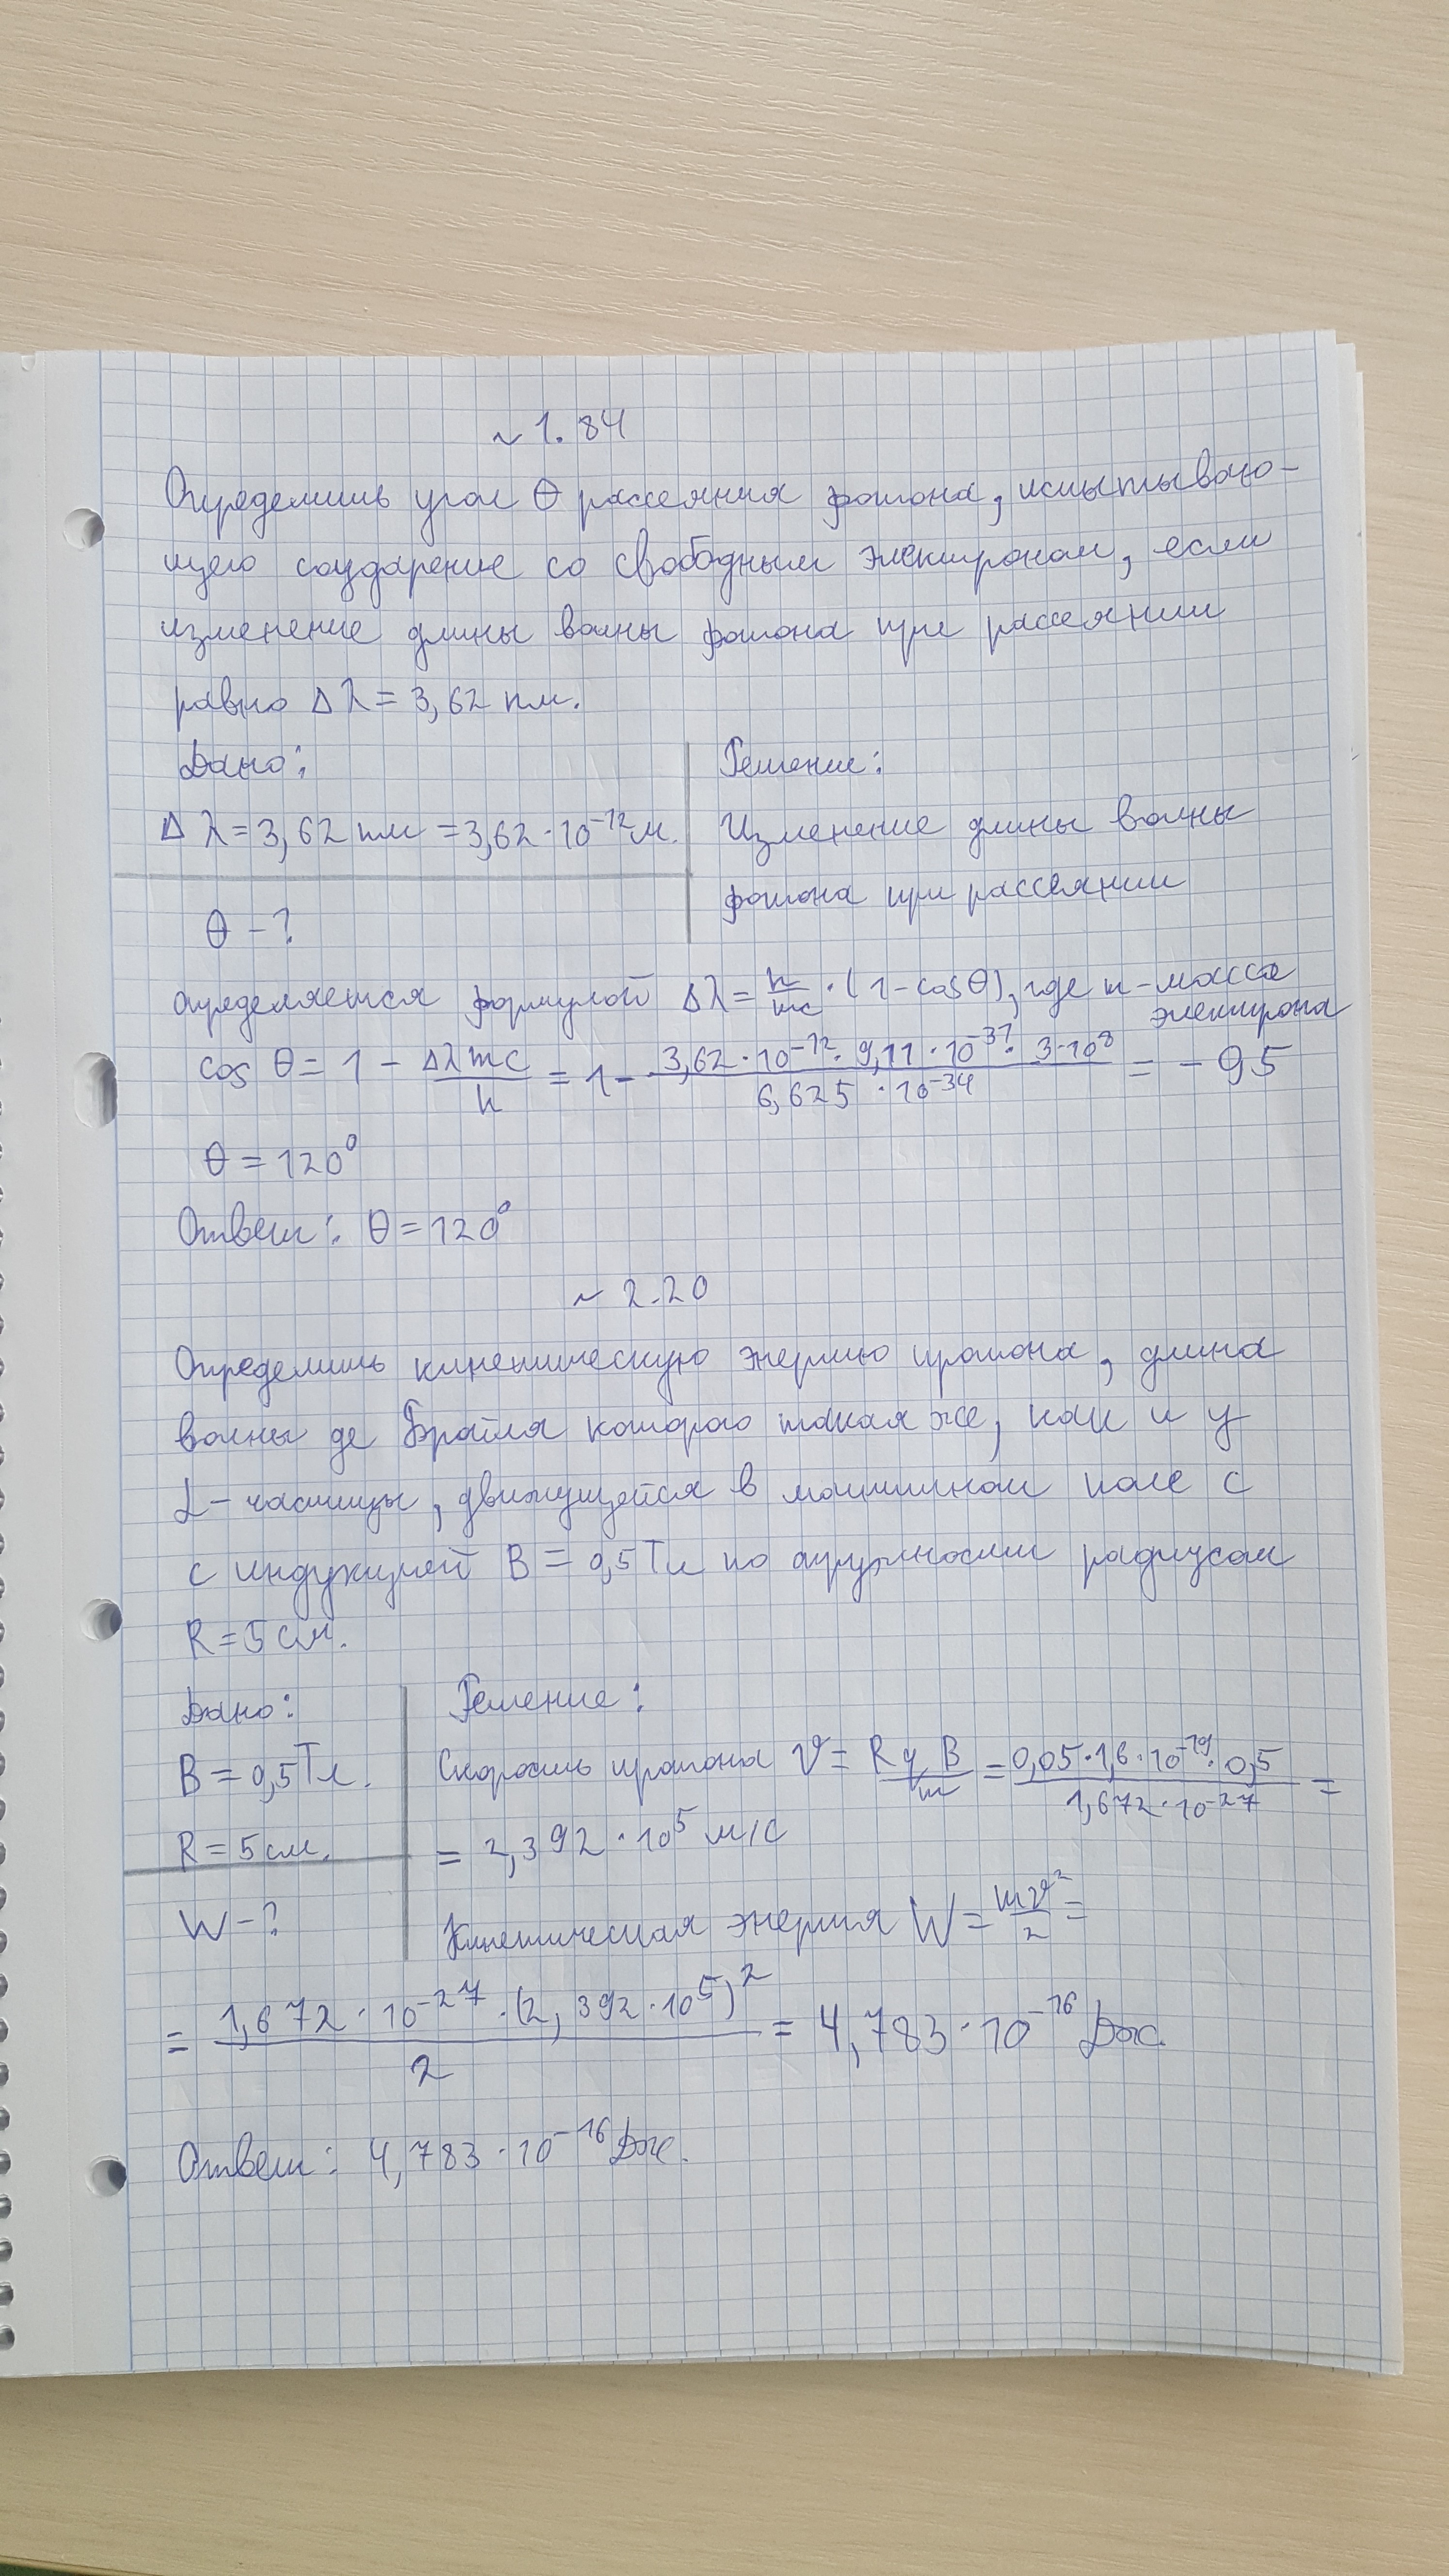 ~ 1.84
Определить угол θ рассеяния фотона, испытываю-
щего соударение со свободным электроном, если
изменение длины волны фотона при рассеянии
равно Δλ = 3,62 пм.
Дано:
Δλ = 3,62 пм = 3,62 · 10⁻¹² м.
θ - ?
Решение:
Изменение длины волны
фотона при рассеянии
определяется формулой Δλ = h/mc · (1 - cos θ), где m - масса
электрона
cos θ = 1 - Δλmc/h = 1 - 3,62 · 10⁻¹² · 9,11 · 10⁻³¹ · 3 · 10⁸/6,625 · 10⁻³⁴ = - 0,5
θ = 120°
Ответ: θ = 120°
~ 2.20
Определить кинетическую энергию протона, длина
волны де Бройля которого такая же, как и у
α - частицы, движущейся в магнитном поле с
с индукцией B = 0,5 Тл по окружности радиусом
R = 5 см.
Дано:
B = 0,5 Тл.
R = 5 см.
W - ?
Решение:
Скорость протона v = RqB/m = 0,05 · 1,6 · 10⁻¹⁹ · 0,5/1,672 · 10⁻²⁷ =
= 2,392 · 10⁵ м/с
Кинетическая энергия W = mv²/2 =
= 1,672 · 10⁻²⁷ · (2,392 · 10⁵)²/2 = 4,783 · 10⁻¹⁶ Дж.
Ответ: 4,783 · 10⁻¹⁶ Дж.